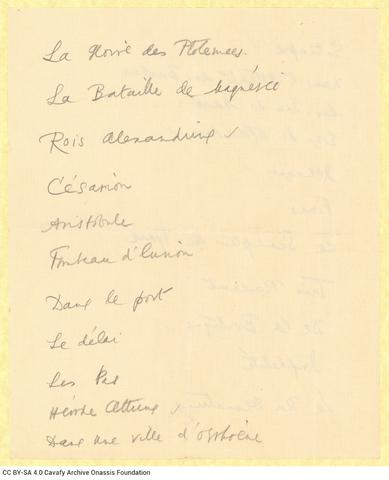 La Gloire des Ptolemees.
La Bataille de Magnésie
Rois Alexandrins
Césarion
Aristobule
Tombeau d'Eurion
Dans le port
Le délai
Les Pas
Hérode Atticus
Dans une ville d'Osrhoène
CC BY-SA 4.0 Cavafy Archive Onassis Foundation